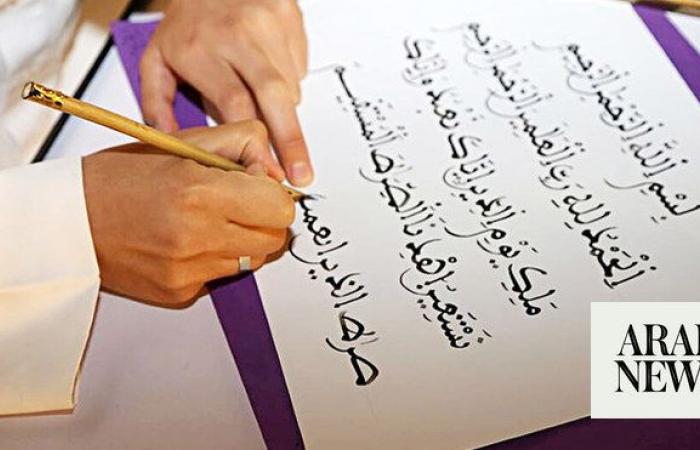 بِسْمِ اللَّهِ الرَّحْمَٰنِ الرَّحِيمِ
الْحَمْدُ لِلَّهِ رَبِّ الْعَٰلَمِينَ الرَّحْمَٰنِ الرَّحِيمِ
مَلِكِ يَوْمِ الدِّينِ إِيَّاكَ نَعْبُدُ وَإِيَّاكَ
نَسْتَعِينُ اهْدِنَا الصِّرَٰطَ الْمُسْتَقِيمَ
صرٰط الذين انعمت
ARA
NEW